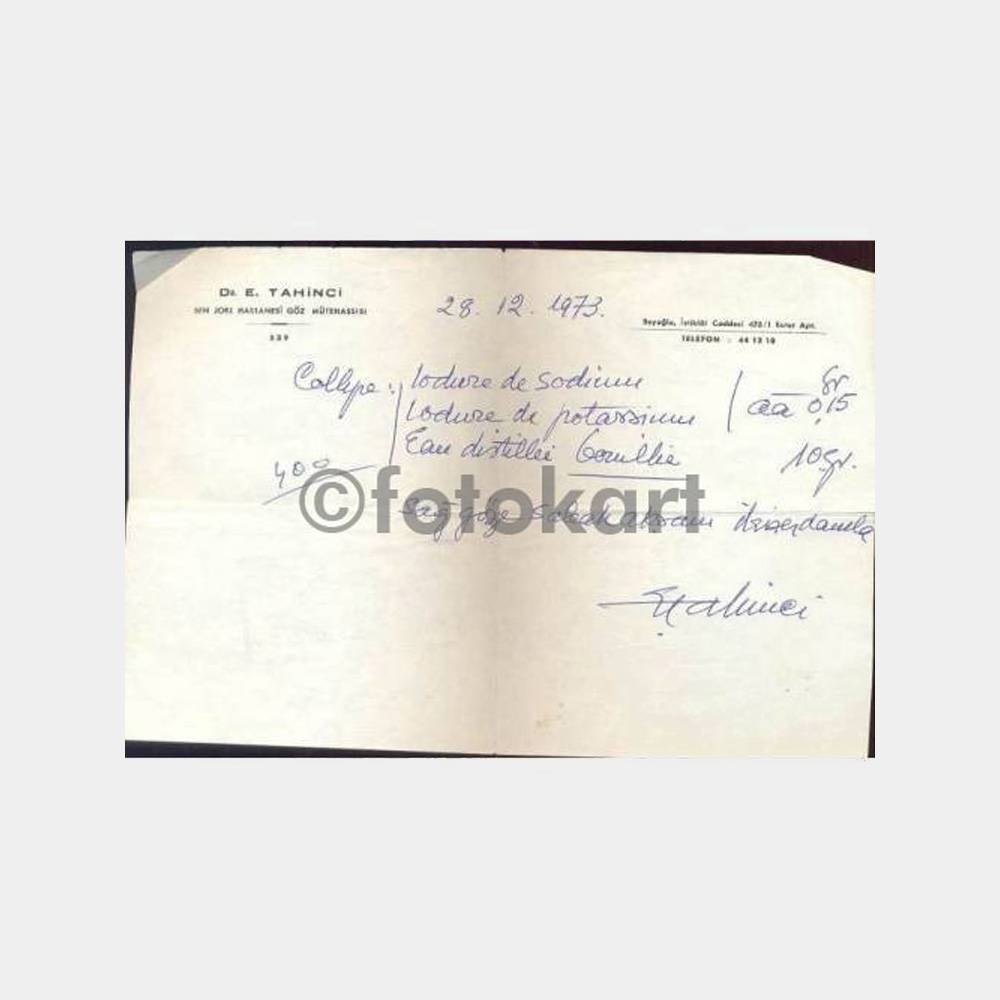 Dr. E. TAHİNCİ
SEN JORJ HASTANESİ GÖZ MÜTEHASSISI
539
28.12.1973.
Beyoğlu, İstiklâl Caddesi 475/1 Apt.
TELEFON : 44 12 10
Collyre: Iodure de Sodium
Iodure de potassium
aa 0,15 gr
Eau distillée bouillie 10 gr.
400
©fotokart
Sağ göze sabah akşam ikişer damla
E. Tahinci